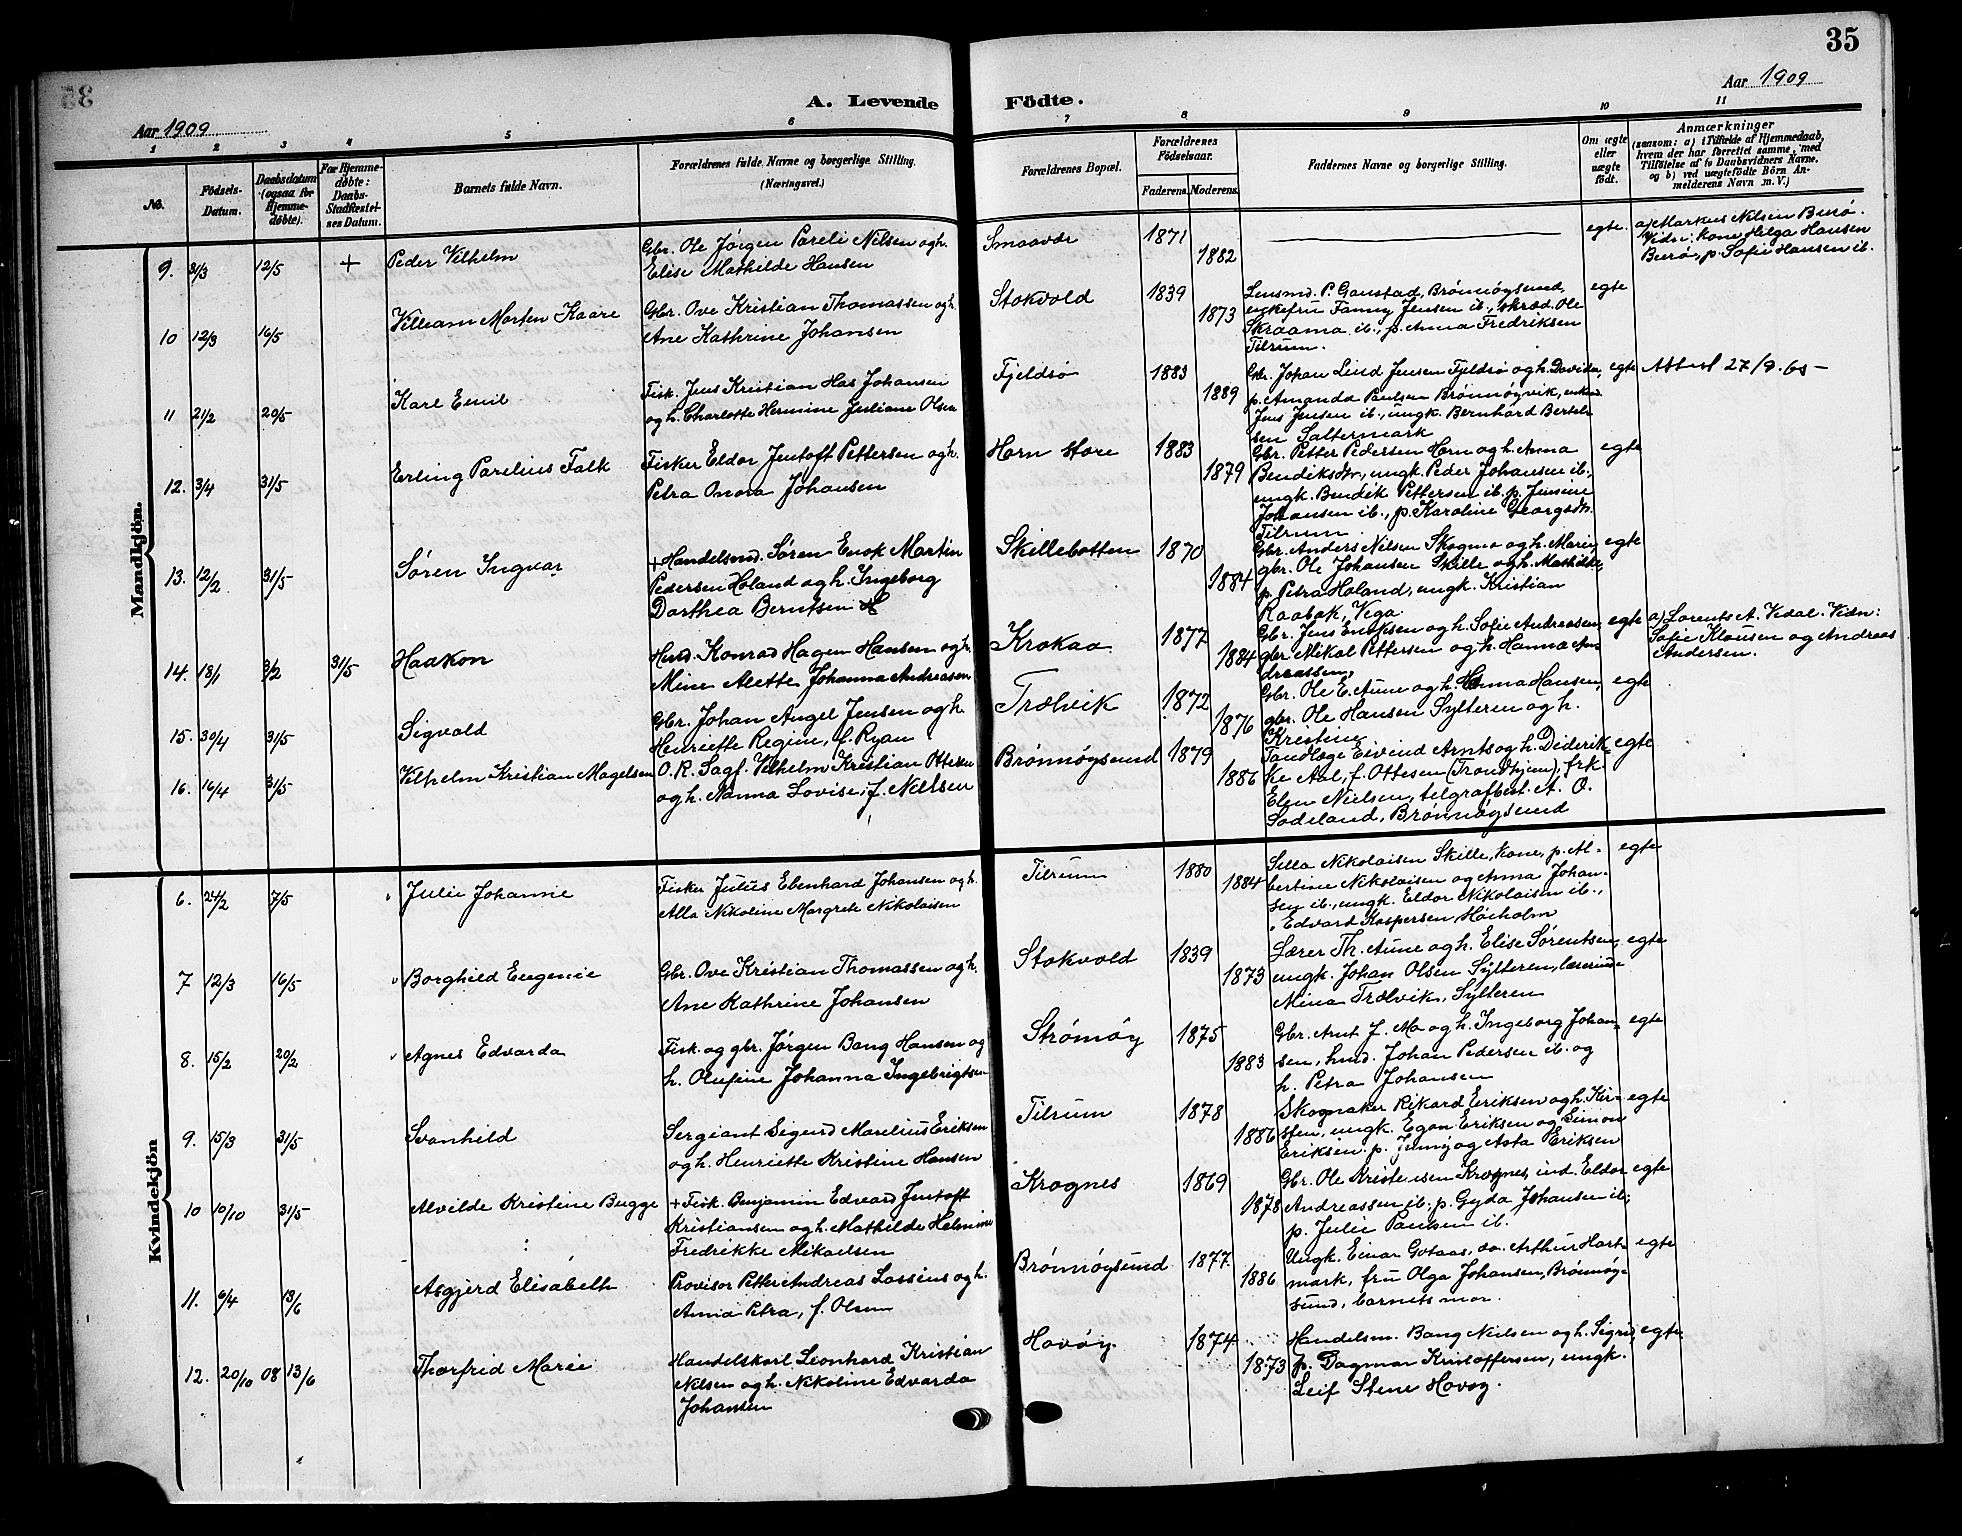 35
A. Levende Födte.
Aar 1909
Aar 1909
1 2 3 4 5 6 7 8 9 10 11
No.
Födsels-Datum.
Daabsdatum (ogsaa for Hjemmedøbte).
For Hjemmedøbte: Daabs-Stadfæstelses Datum.
Barnets fulde Navn.
Forældrenes fulde Navne og borgerlige Stilling.
(Næringsvei.)
Forældrenes Bopæl.
Forældrenes Födselsaar.
Faderens. Moderens.
Faddernes Navne og borgerlige Stilling.
Om ægte eller uægte födt.
Anmærkninger
(saasom: a) i Tilfælde af Hjemmedaab, hvem der har forrettet samme, med Tilföielse af to Daabsvidners Navne. og b) ved uægtefödte Börn Anmelderens Navn m. V.)
Mandkjön.
9. 3/3 12/5 + Peder Vilhelm
Gbr. Ole Jørgen Pareli Nilsen og h.
Elise Mathilde Hansen
Smaavær 1871 1882 egte
a) Markus Nilsen Burø.
Vidn: Kone Helga Hansen
Burø, p. Sofie Hansen ib.
10 12/3 16/5 Villiam Morten Kaare
Gbr. Ove Kristian Thomassen og h.
Ane Kathrine Johansen
Stokvold 1839 1873
Lensmd. P. Gaustad, Brønnøysund,
enkefru Fanny Jensen ib., skræd. Ole
Skraama ib., p. Anna Fredriksen
Tilrum.
egte
11 21/2 20/5 Karl Emil
Fisk. Jens Kristian Has Johansen
og h. Charlotte Hermine Juliane Olsen
Fjeldsø 1883 1889
Gbr. Johan Lind Jensen Fjeldsø og h. Davida,
p. Amanda Paulsen Brønnøyvik, enkem.
Jens Jensen ib., ungk. Bernhard Bertel-
sen Saltermark
egte Attest 27/9.65 -
12. 3/4 31/5 Erling Parelius Falk
Fisker Eldor Jentoft Pettersen og h.
Petra Onora Johansen
Horn store 1883 1879
Gbr. Petter Pedersen Horn og h. Anna
Bendiksdtr., ungk. Peder Johansen ib.,
ungk. Bendik Pettersen ib. p. Jensine
Johansen ib., p. Karoline Georgsdtr.
Tilrum.
egte
13. 12/2 31/5 Søren Ingvar
+ Handelsmd. Søren Enok Martin
Pedersen Holand og h. Ingeborg
Dorthea Berntsen
Skillebotten 1870 1884
Gbr. Anders Nilsen Skogmo og h. Marie,
gbr. Ole Johansen Skille og h. Mathilde,
p. Petra Holand, ungk. Kristian
Raabak, Vega.
egte
14. 18/1 3/2 31/5 Haakon
Hmd. Konrad Hagen Hansen og h.
Mine Alette Johanna Andreasen
Krokaa 1877 1884
Gbr. Jens Enoksen og h. Sofie Andreassen,
gbr. Mikal Pettersen og h. Hanna An-
dreassen,
egte
a) Lorents A. Vidal. Vidn:
Sofie Klausen og Andreas
Andersen.
15. 30/4 31/5 Sigvald
Gbr. Johan Angel Jensen og h.
Henriette Regine, f. Ryan
Trælvik 1872 1876
Gbr. Ole E. Aune og h. Anna Hansen,
gbr. Ole Hansen Sylteren og h.
Kristine
egte
16. 16/4 31/5 Vilhelm Kristian Magelsen
O. R. Sagf. Vilhelm Kristian Ottesen
og h. Nanna Lovise, f. Nielsen
Brønnøysund 1879 1886
Tandlæge Eivind Arnts og h. Diderik-
ke Aal, f. Ottesen (Trondhjem), frk.
Elen Nielsen, telgrafbest. A. O.
Sodeland, Brønnøysund
egte
Kvindekjön
6. 24/2 7/5 Julie Johanne
Fisker Julius Ebenhard Johansen og h.
Alla Nikoline Margrete Nikolaisen
Tilrum 1880 1884
Silla Nikolaisen Skille, Kone, p. Al-
bertine Nikolaisen og Anna Johan-
sen ib., ungk. Eldor Nikolaisen ib.,
Edvard Kaspersen, Høiholm
egte
7 12/3 16/5 Borghild Eugenie
Gbr. Ove Kristian Thomassen og h.
Ane Kathrine Johansen
Stokvold 1839 1873
Lærer Th. Aune og h. Elise Sørentsen,
ungk. Johan Olsen Sylteren, lærerinde
Mina Trælvik, Sylteren
egte
8. 15/2 20/2 Agnes Edvarda
Fisk. og gbr. Jørgen Bang Hansen og
h. Olufine Johanna Ingebrigtsen
Strømøy 1875 1883
Gbr. Arnt J. Mo og h. Ingeborg Johan-
sen, hmd. Johan Pedersen ib. og
h. Petra Johansen
egte
9. 15/3 31/5 Svanhild
Sergiant Sigurd Marelius Eriksen
og h. Henriette Kristine Hansen
Tilrum 1878 1886
Skomaker Rikard Eriksen og h. Kir-
sten, ungk. Egon Eriksen og Simon
Eriksen. p. Jenny og Asta Eriksen
egte
10 10/10 31/5 Alvilde Kristine Bugge
+ Fisk. Benjamin Edvard Jentoft
Kristiansen og h. Mathilde Helmine
Fredrikke Mikaelsen
Krognes 1869 1878
Gbr. Ole Kristensen Krognes, ind. Eldor
Andreassen ib., p. Gyda Johansen ib.,
p. Julie Paulsen ib.
egte
11. 6/4 13/6 Asgjerd Elisabeth
Provisor Petter Andreas Lassius og h.
Anna Petra, f. Olsen
Brønnøysund 1877 1886
Ungk. Einar Gotaas, do. Arthur Hart-
mark, fru Olga Johansen, Brønnøy-
sund, barnets mor.
egte
12. 20/10 08 13/6 Thorfrid Marie
Handelskarl Leonhard Kristian
Nilsen og h. Nikoline Edvarda
Johansen
Havøy. 1874 1873
Handelsm. Bang Nielsen og h. Sigrid,
p. Dagmar Kristoffersen, ungk.
Leif Stene Havøy.
egte